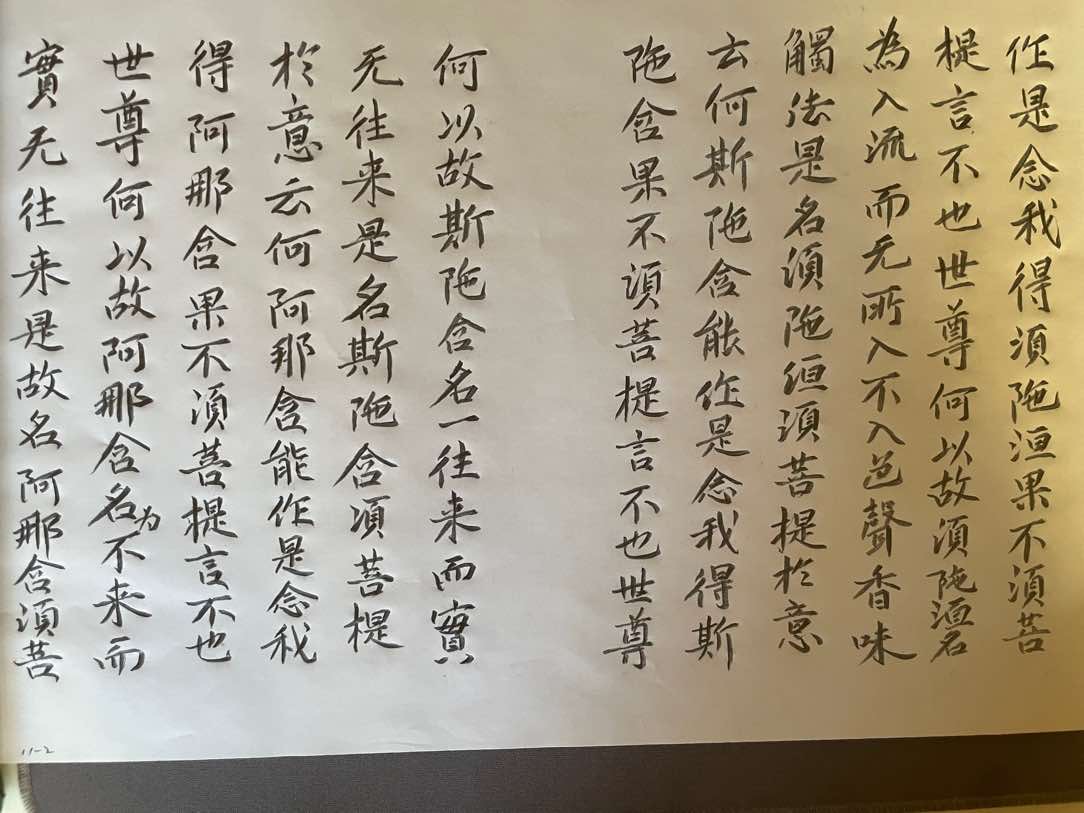 作是念我得須陁洹果不須菩
提言不也世尊何以故須陁洹名
為入流而无所入不入色聲香味
觸法是名須陁洹須菩提於意
云何斯陁含能作是念我得斯
陁含果不須菩提言不也世尊
何以故斯陁含名一往来而實
无往来是名斯陁含須菩提
於意云何阿那含能作是念我
得阿那含果不須菩提言不也
世尊何以故阿那含名为不来而
實无往来是故名阿那含須菩
11-2